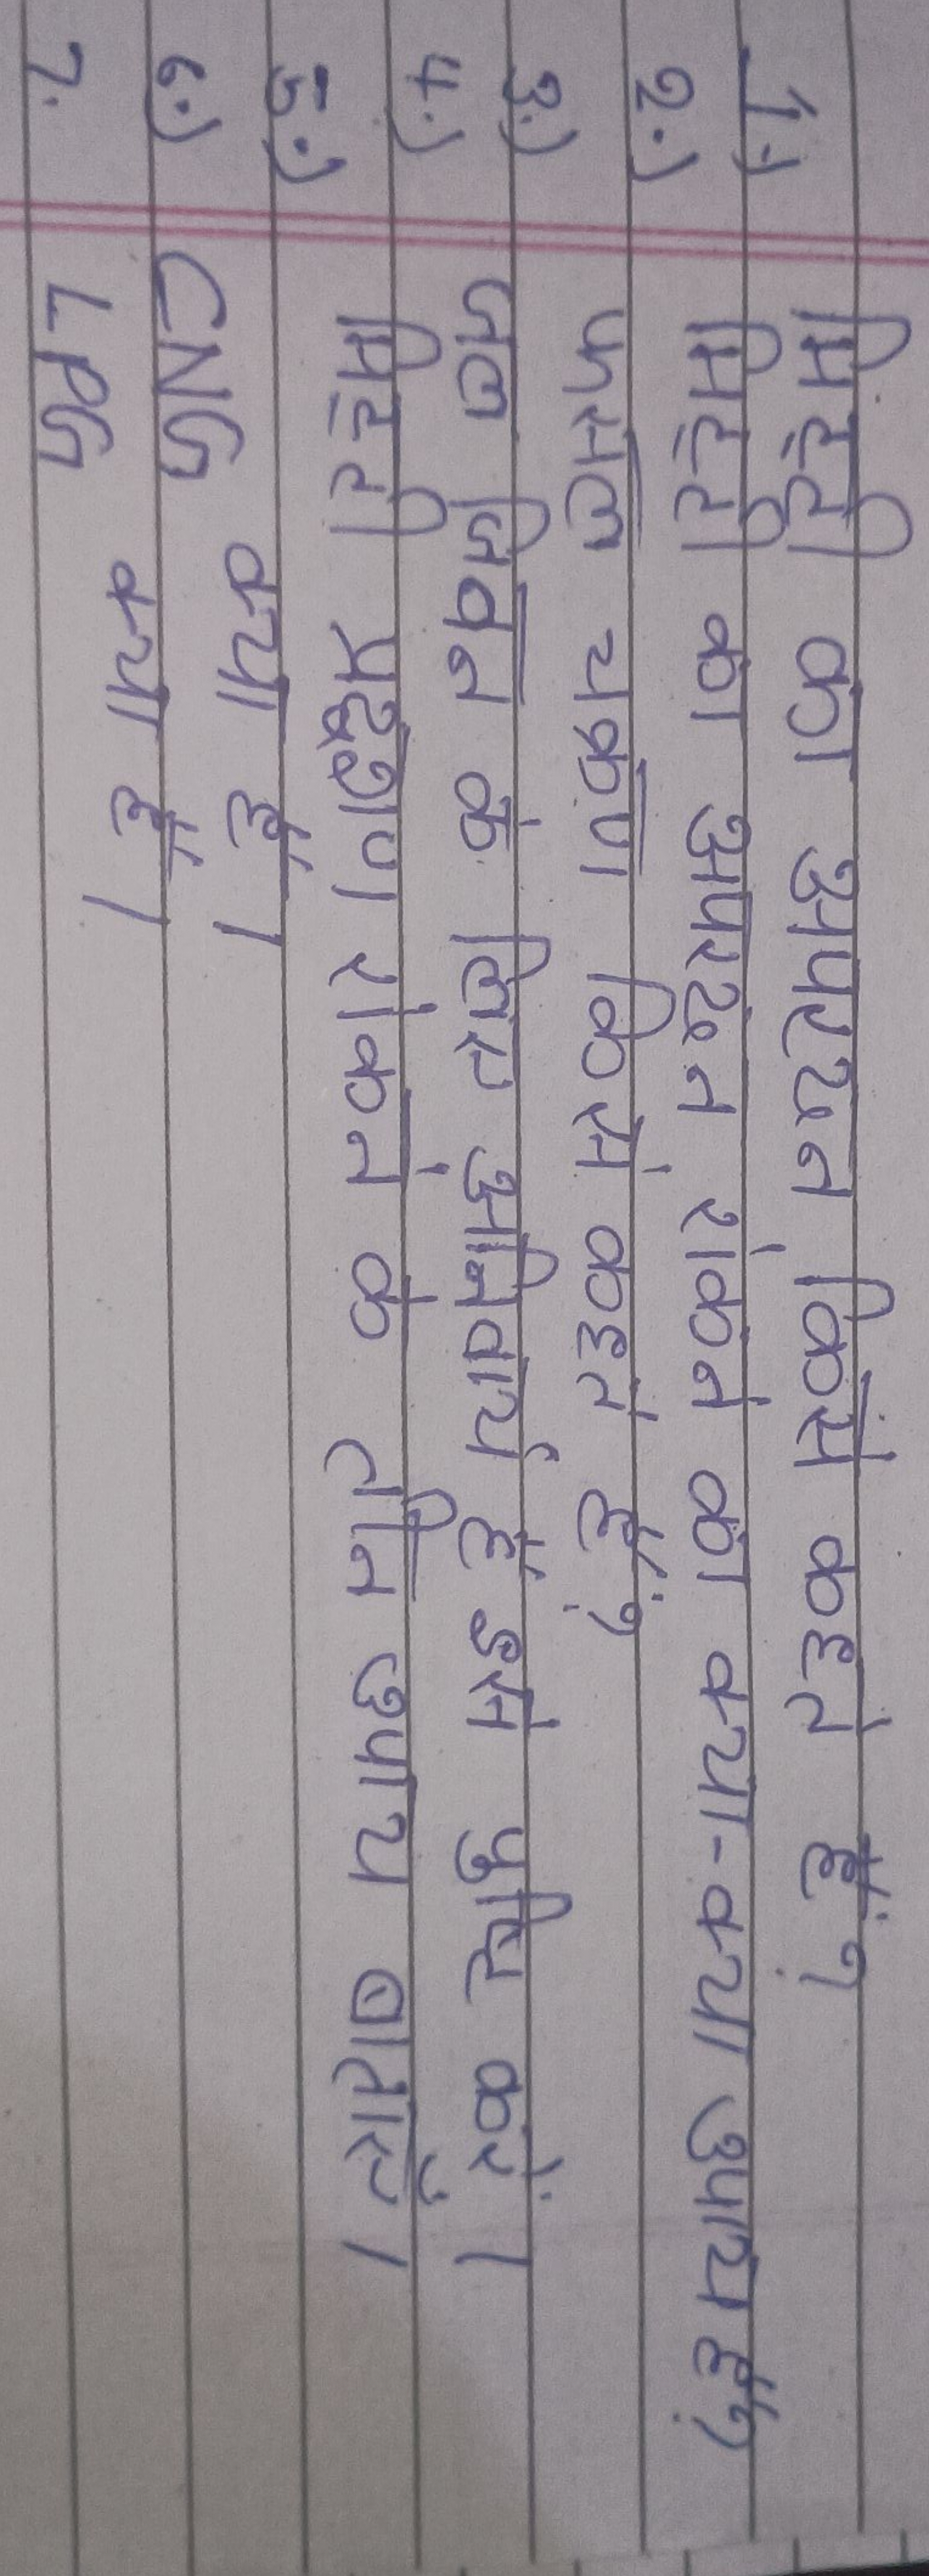 1.) मिट्टी का अपरदन किसे कहते हैं?
2.) मिट्टी का अपरदन रोकने का क्या-क्या उपाय हैं?
3.) फसल चक्रण किसे कहते हैं?
4.) जल जिवन के लिए अनिवार्य है इसे पुष्टि करें।
5.) मिट्टी प्रदूषण रोकने के तीन उपाय बाताएँ।
6.) CNG क्या है।
7. LPG क्या है।